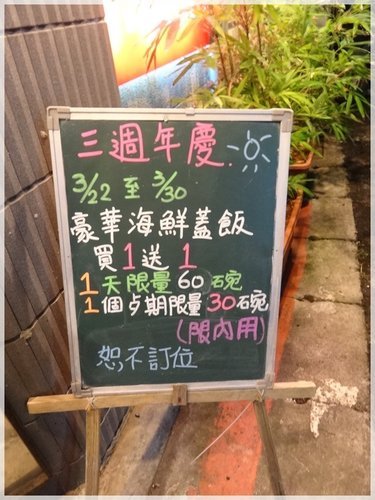 三週年慶
3/22 至 3/30
豪華海鮮蓋飯
買1送1
1天限量60碗
1個歺期限量30碗
(限內用)
恕不訂位